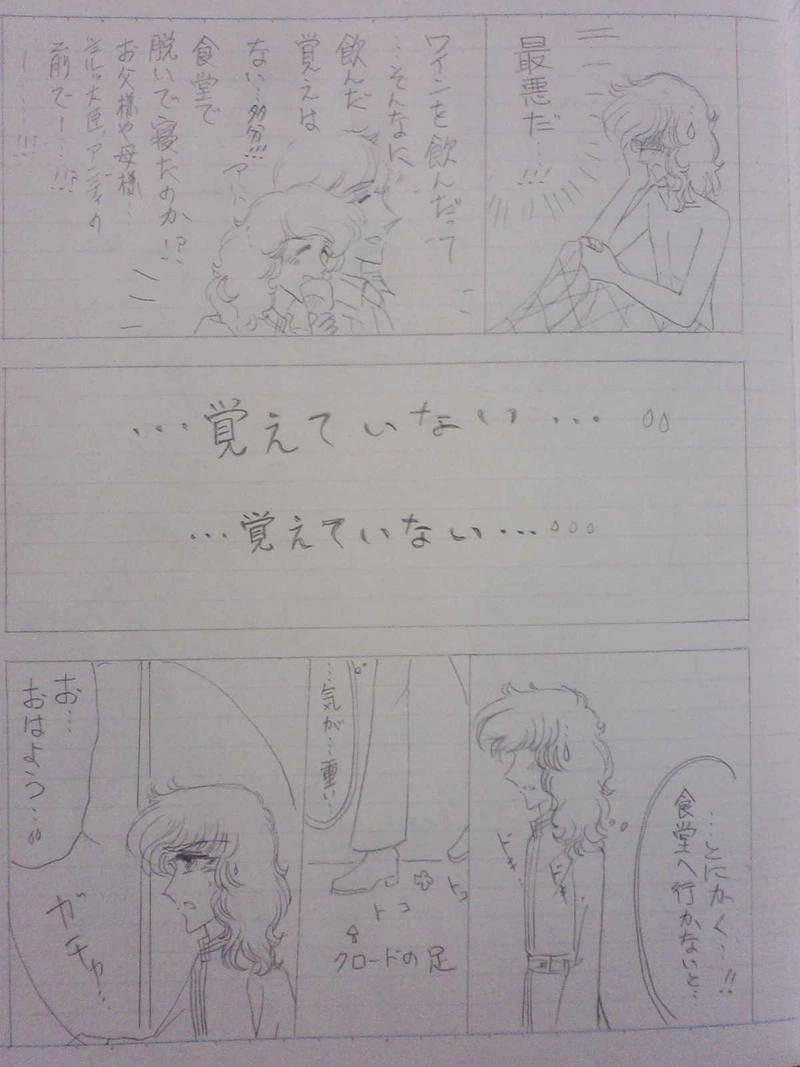 最悪だ…!!!
ワインを飲んだって
…そんなに
飲んだ
覚えは
ない…多分!!!
食堂で
脱いで寝たのか!?
お父様や母様…
大臣、アンディの
前でー…!!?
ー……!!!
…覚えていない…。。
…覚えていない…。。。
…とにかく…!!
食堂へ行かないと…
ドキ
ドキ
…気が…重い…
トコ
トコ
クロードの足
お…
おはよう…。。
ガチャ…